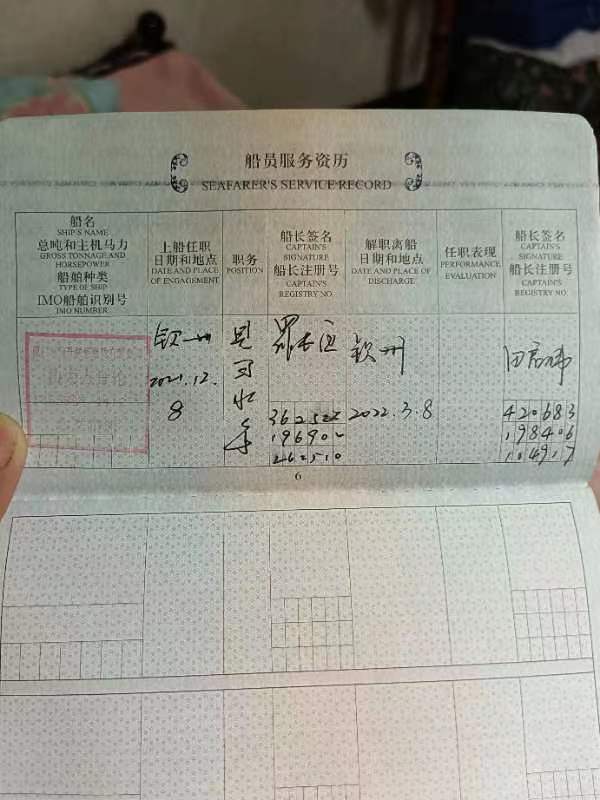 船员服务资历
SEAFARER'S SERVICE RECORD
船名
SHIP'S NAME
总吨和主机马力
GROSS TONNAGE AND
HORSEPOWER
船舶种类
TYPE OF SHIP
IMO船舶识别号
IMO NUMBER
上船任职
日期和地点
DATE AND PLACE
OF ENGAGEMENT
职务
POSITION
船长签名
CAPTAIN'S
SIGNATURE
船长注册号
CAPTAIN'S
REGISTRY NO.
解职离船
日期和地点
DATE AND PLACE OF
DISCHARGE
任职表现
PERFORMANCE
EVALUATION
船长签名
CAPTAIN'S
SIGNATURE
船长注册号
CAPTAIN'S
REGISTRY NO.
钦州
2021.12.
8
见
习
水
手
钦州
2022.3.8
420683
198406
6